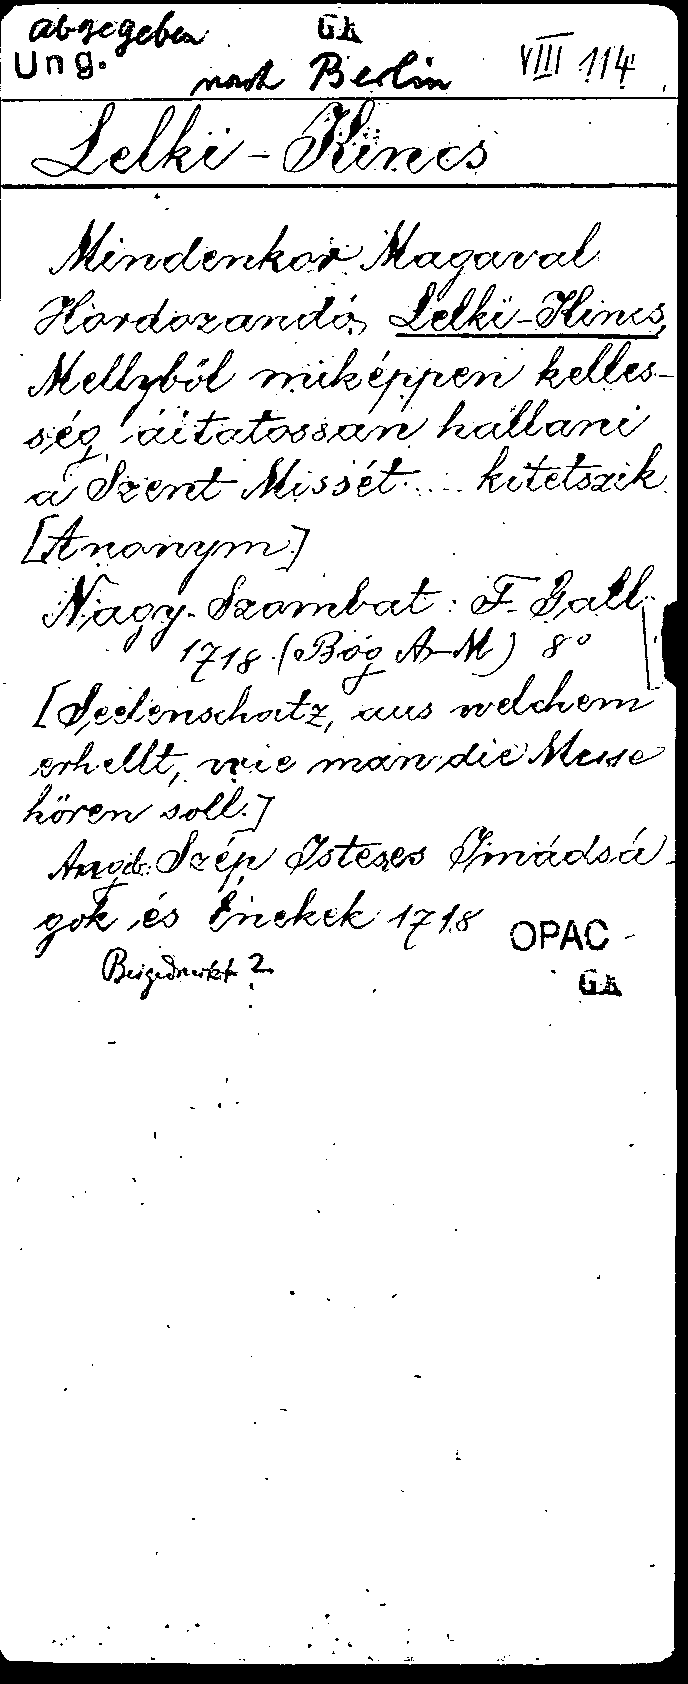 abgegeben GK
Ung. nach Berlin VIII 114
Lelki-Kincs
Mindenkor Magaval
Hordozandó, Lelki-Kincs,
Mellyböl miképpen kelles-
ség áitatossan hallani
a' Szent Missét ... kitetszik
[Anonym]
Nagy-Szombat: F. Gall
1718 (Bog A-M) 8°
[Seelenschatz, aus welchem
erhellt, wie man die Messe
hören soll.]
Angeb: Szép Istenes Imádsá-
gok és Énekek 1718
OPAC
Beigedruckt 2
GK